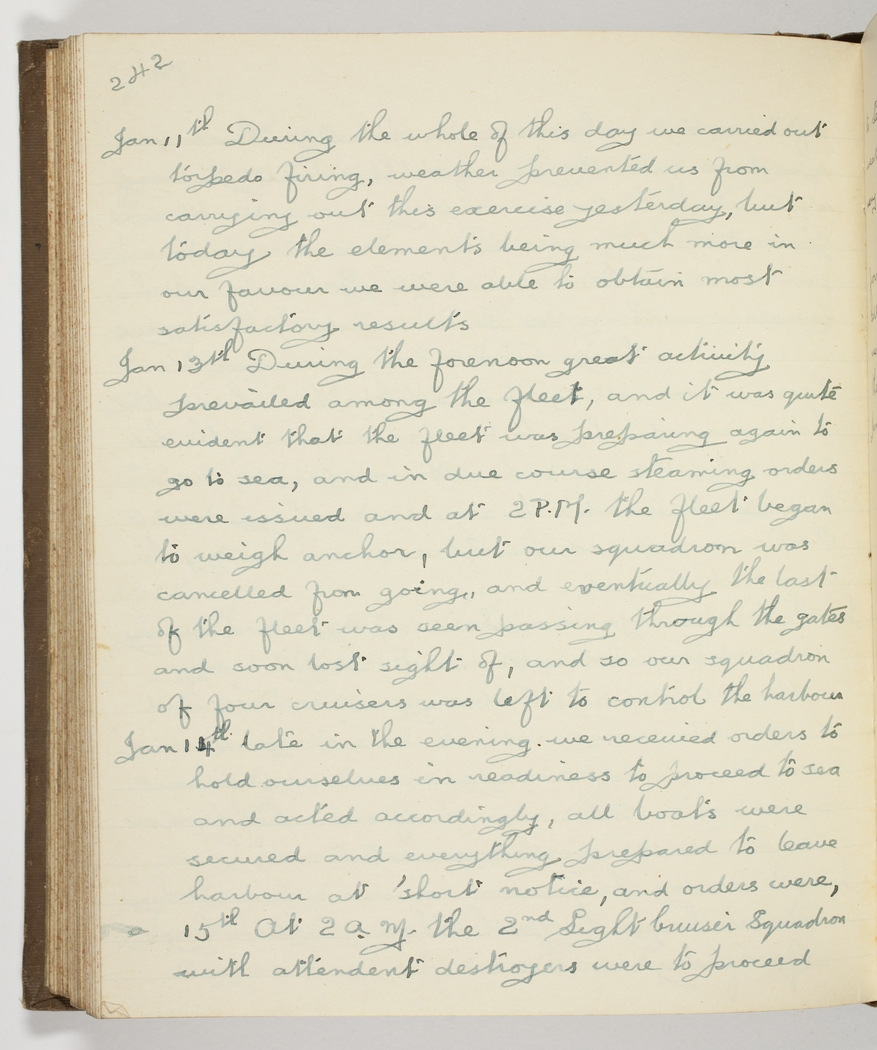 242
Jan 11th During the whole of this day we carried out
torpedo firing, weather prevented us from
carrying out this exercise yesterday, but
today the elements being much more in
our favour we were able to obtain most
satisfactory results
Jan 13th During the forenoon great activity
prevailed among the fleet, and it was quite
evident that the fleet was preparing again to
go to sea, and in due course steaming orders
were issued and at 2 P.M. the fleet began
to weigh anchor, but our squadron was
cancelled from going, and eventually the last
of the fleet was seen passing through the gates
and soon lost sight of, and so our squadron
of four cruisers was left to control the harbour
Jan 14th late in the evening. we received orders to
hold ourselves in readiness to proceed to sea
and acted accordingly, all boats were
secured and everything prepared to leave
harbour at 'short notice, and orders were,
15th At 2 a.m. the 2nd Light Cruiser Squadron
with attendent destroyers were to proceed